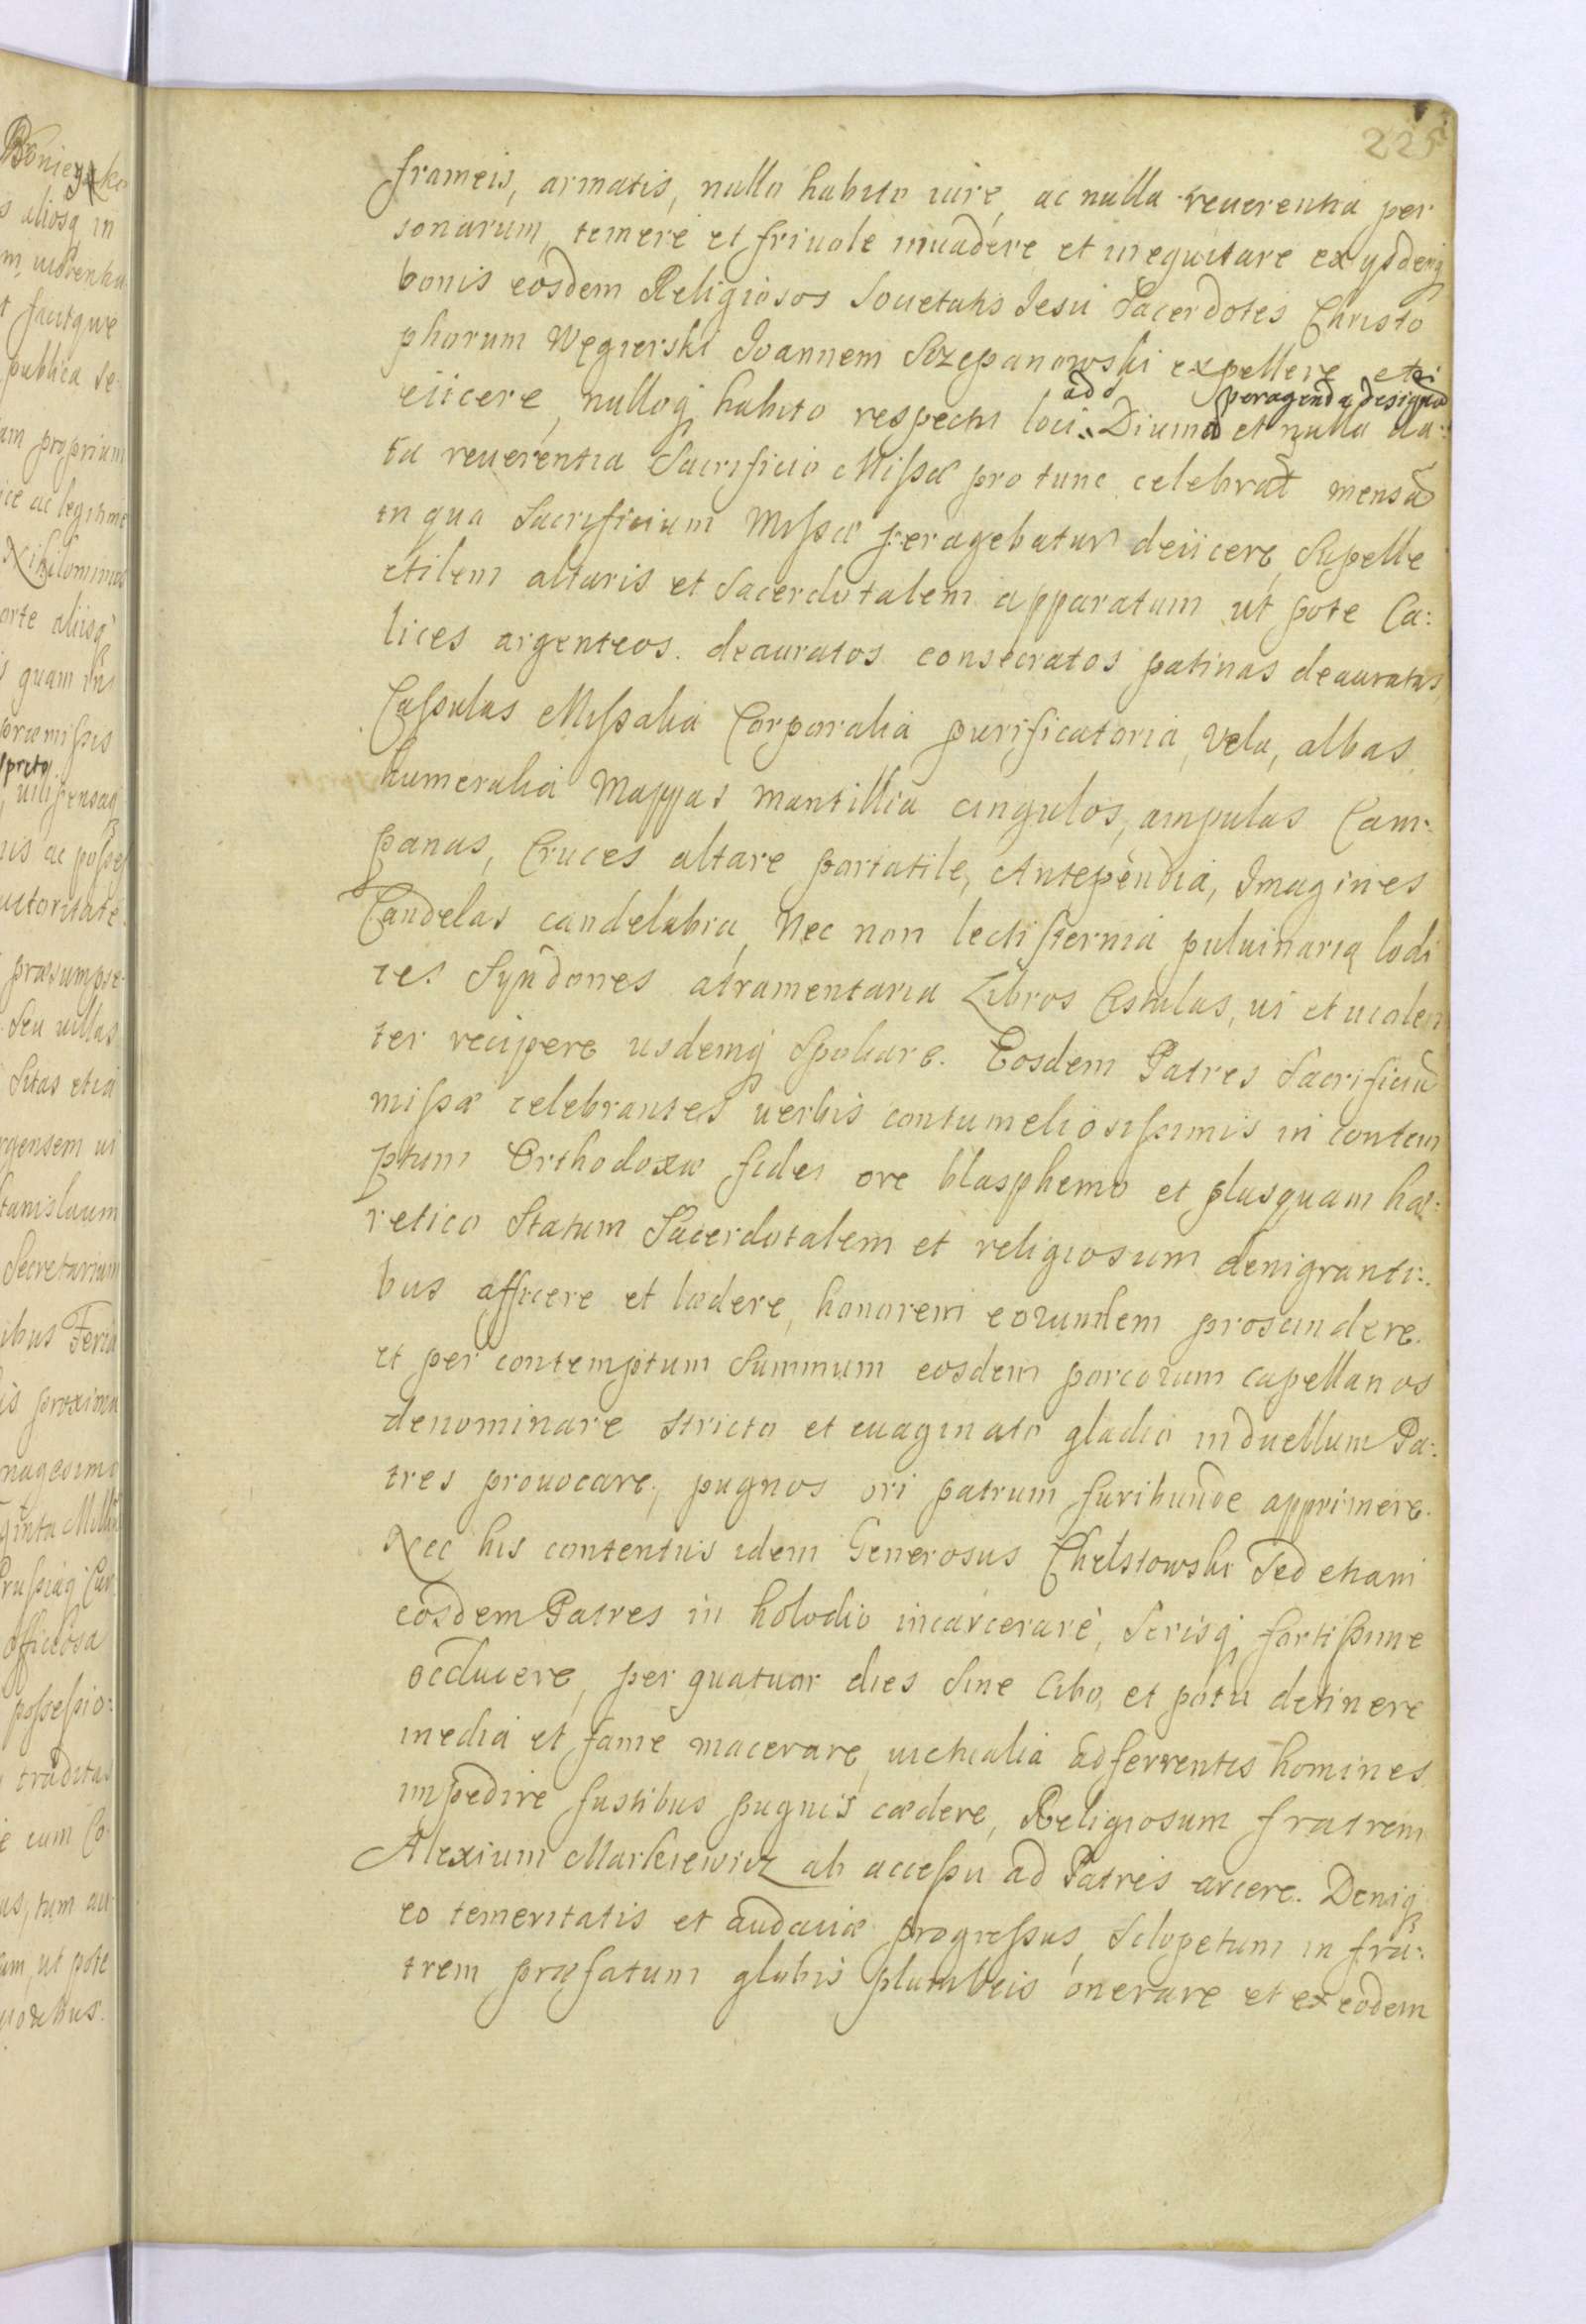 225
frameis, armatis, nullo habito iure, ac nulla reuerentia per
sonarum, temere et friuole inuadere et inequitare ex ysdemq
bonis eosdem Religiosos Societatis Iesu Sacerdotes Christo
phorum Węgierski Ioannem Szczepanowski expellere et
eiicere, nulloq habito respectu loci ad Diuina peragenda designa et nulla da:
ta reuerentia Sacrificio Missæ pro tunc celebrat mensã
in qua Sacrificium Missæ peragebatur deiicere, Supelle
ctilem altaris et Sacerdotalem apparatum ut pote Ca:
lices argenteos deauratos consecratos patinas deauratas
Casulas Missalia Corporalia purificatoria, Vela, albas
humeralia Mappas mantillia cingulos, ampulas Cam:
panas, Cruces altare portatile, Antependia, Imagines
Candelas candelabra, Nec non lectisternia puluinaria lodi
ces Syndones atramentaria Libros Cistulas, ui et uiolen
ter recipere usdemq Spoliare. Eosdem Patres Sacrificiũ
missæ celebrantes uerbis contumeliosissimis in contem
ptum Orthodoxæ fidei ore blasphemo et plusquam hæ:
retico Statum Sacerdotalem et religiosum denigranti:
bus afficere et lædere, honorem eorundem proscindere.
et per contemptum Summum eosdem porcorum capellanos
denominare stricto et euaginato gladio in duellum Pa:
tres prouocare, pugnos ori patrum furibunde apprimere.
Nec his contentus idem Generosus Chelstowski Sed etiam
eosdem Patres in holodio incarcerare, Serisq fortissime
occludere, per quatuor dies Sine Cibo, et potu detinere
inedia et fame macerare, uictualia adferrentes homines
impedire fustibus pugnis cædere, Religiosum fratrem
Alexium Markiewicz ab accessu ad Patres arcere. Deniq
eo temeritatis et audaciæ progressus, Sclopetum in fra:
trem præfatum globis plumbeis onerare et ex eodem